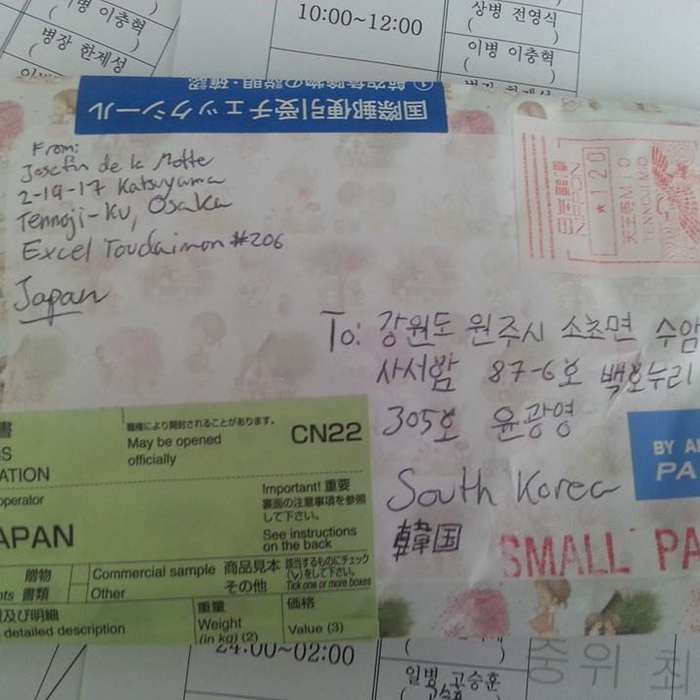 이병 이충혁
병장 한제성
10:00~12:00
상병 전영식
이병 이충혁
국제
国際郵便引受チェックシール
From:
Josefin de la Motte
2-19-17 Katsuyama
Tennoji-ku, Osaka
Excel Toudaimon #206
Japan
日本郵便
NIPPON
120
天王寺 MIO
TENNOJI MIO
To: 강원도 원주시 소초면 수암
사서함 87-6호 백호누리
305호 윤광영
South Korea
韓国
BY AI
PA
SMALL PA
職権により開封されることがあります。
May be opened
officially
CN22
ATION
operator
APAN
Important! 重要
裏面の注意事項を参照
して下さい。
See instructions
on the back
贈物
書類
Commercial sample 商品見本
Other その他
該当するものにチェック
(✓)をして下さい。
Tick one or more boxes
及び明細
detailed description
重量
Weight
(in kg) (2)
価格
Value (3)
24:00~02:00
일병 고승훈
중위 최